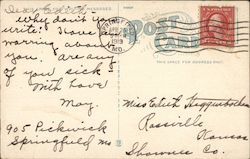 Dear Edith
Why don't you
write. I have been
worring about
you. Are any
of you sick
With love
May.
905 Pickwick
Springfield Mo
POST CARD
THIS SPACE FOR ADDRESS ONLY
MO.
Miss Edith
Rossville
Kansas
Shawnee Co.